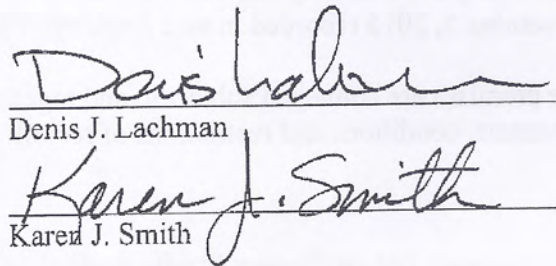 Denis Lachman
Denis J. Lachman
Karen J. Smith
Karen J. Smith